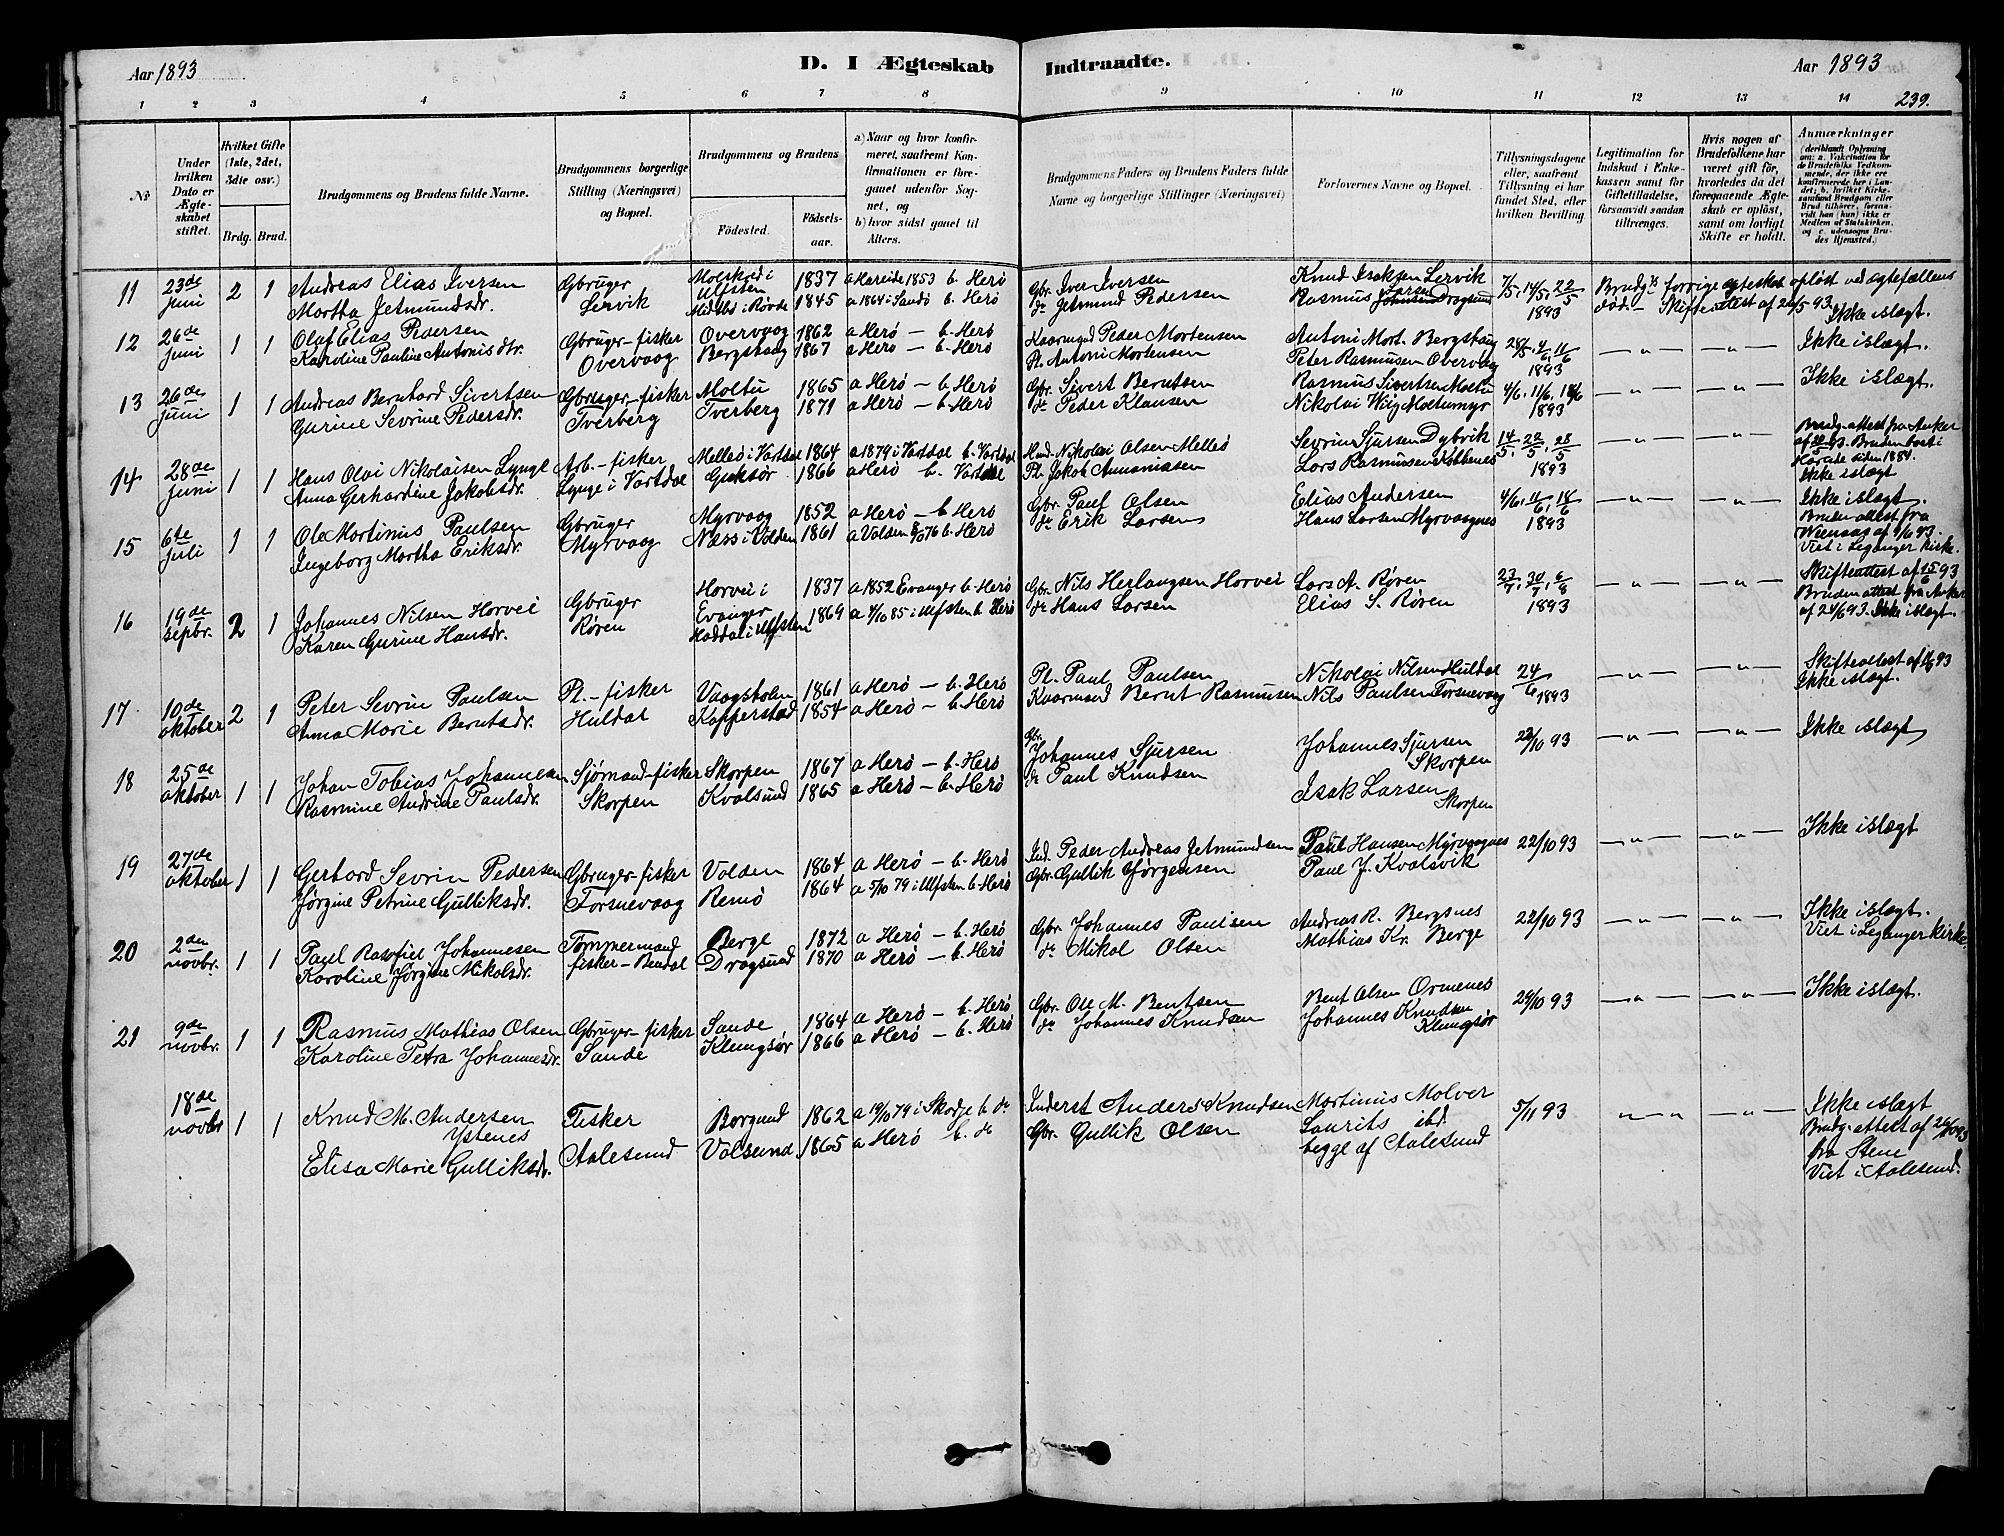 Aar 1893
D. I Ægteskab
Indtraadte.
Aar 1893
239.
1 2 3 4 5 6 7 8 9 10 11 12 13 14
No
Under hvilken Dato er Ægteskabet stiftet.
Hvilket Gifte (1ste, 2det, 3die osv.)
Brdg. Brud.
Brudgommens og Brudens fulde Navne.
Brudgommens borgerlige Stilling (Næringsvei) og Bopæl.
Brudgommens og Brudens
Fødested.
Fødsels-aar.
a) Naar og hvor konfirmeret, saafremt Konfirmationen er foregaaet udenfor Sognet, og
b) hvor sidst gaaet til Alters.
Brudgommens Faders og Brudens Faders fulde Navne og borgerlige Stillinger (Næringsvei)
Forlovernes Navne og Bopæl.
Tillysningsdagene eller, saafremt Tillysning ei har fundet Sted, efter hvilken Bevilling.
Legitimation for Indskud i Enkekassen samt for Giftetilladelse, forsaavidt saadan tiltrænges.
Hvis nogen af Brudefolkene har været gift før, hvorledes da det foregaaende Ægteskab er opløst, samt om lovligt Skifte er holdt.
Anmærkninger (deriblandt Oplysning om: a. Vaccination for de Brudefolks Vedkommende, der ikke ere konfirmerede her i Landet; b. hvilket Kirkesamfund Brudgom eller Brud tilhører, forsaavidt han (hun) ikke er Medlem af Statskirken, og c. udensogns Brudes Hjemsted.)
11 23de Juni 2 1 Andreas Elias Iversen Gbruger Molskred i Ulfsten 1837 a Hareide 1853 b. Herø Gbr. Iver Iversen Knud Isaksen Lervik 7/5, 14/5, 22/5 1893 Brudg's forrige ægteskab opløst ved ægtefællens død. – Skifteattest af 20/5 93.
Martha Jetmundsdr. Lervik i Rørde 1845 a 1864 i Sandø b. Herø do Jetmund Pedersen Rasmus Larsen Dragsund Ikke islægt.
12 26de Juni 1 1 Olaf Elias Pedersen Gbruger-fisker Overvaag 1862 a Herø – b. Herø Kaarmand Peder Mortensen Antoni Mort. Bergshaug 28/5, 4/6, 11/6 1893 – " – – " – Ikke islægt.
Karoline Pauline Antonis dr. Overvaag Bergshaug 1867 a Herø – b. Herø Pl. Antoni Mortensen Peter Rasmussen Overvaag
13 26de Juni 1 1 Andreas Bernhard Sivertsen Gbruger-fisker Moltu 1865 a Herø – b. Herø Gbr. Sivert Berntsen Rasmus Sivertsen Moltu 4/6, 11/6, 18/6 1893 – " – – " – Ikke islægt.
Gurine Sevrine Pedersdr. Tverberg Tverberg 1871 a Herø – b. Herø do Peder Klausen Nikolai Wiig Moltumyr
14 28de Juni 1 1 Hans Olai Nikolaisen Lynge Arb. – fisker Melleø i Vartdal 1864 a 1879 i Vartdal b. Vartdal Hmd. Nikolai Olsen Melleø Sevrin Sjursen Dybvik 14/5, 22/5, 28/5 1893 – " – – " – Brudg. attest fra Anker Bruden boet i Harade siden 1884. Ikke islægt
Anna Gerhardine Jakobsdr. Lynge i Vartdal Gurksør 1866 a Herø b. Vartdal Pl. Jakob Lars Rasmussen Kobbenes
15 6te Juli 1 1 Ole Martinus Paulsen Gbruger Myrvaag 1852 a Herø – b. Herø Gbr. Paul Olsen Elias Andersen 4/6, 11/6, 18/6 1893 – " – – " – Ikke islægt. Bruden attest fra 1/6 93. Viet i Leganger kirke.
Ingeborg Martha Eriksdr. Myrvaag Næss i Volden 1861 a Volden 76 b. Herø do Erik Larsen Hans Larsen Myrvaagnes
16 19de septbr. 2 1 Johannes Nilsen Horvei Gbruger Horvei i Evanger 1837 a 1852 Evanger b. Herø Gbr. Nils Herlaugsen Horvei Lars A. Røren 23/7, 30/7, 6/8 1893 – " – – " – Skifteattest af 15/6 93 Bruden attest fra Anker af 24/6 93. Ikke islægt.
Karen Gurine Hansdr. Røren Haddal i Ulfsten 1869 a 4/10 85 i Ulfsten b. Herø do Hans Larsen Elias S. Røren
17 10de oktober 2 1 Peter Sevrin Paulsen Pl. – fisker Vaagsholm 1861 a Herø – b. Herø Pl. Paul Paulsen Nikolai Nilsen Huldal 24/6 1893 – " – – " – Skifteattest af 93 Ikke islægt.
Anna Marie Berntsdr. Huldal Kopperstad 1854 a Herø – b. Herø Kaarmand Bernt Rasmussen Nils Paulsen Torsnevaag
18 25de oktober 1 1 Johan Tobias Johannesen Sjømand-fisker Skorpen 1867 a Herø – b. Herø Gbr. Johannes Sjursen Johannes Sjursen Skorpen 22/10 93 – " – – " – Ikke islægt
Rasmine Andrine Paulsdr. Skorpen Kvalsund 1865 a Herø – b. Herø do Paul Knudsen Isak Larsen Skorpen
19 27de oktober 1 1 Gerhard Sevrin Pedersen Gbruger-fisker Volden 1864 a Herø – b. Herø Ind. Peder Andreas Jetmundsen Paul Hansen Myrvaagnes 22/10 93 – " – – " – Ikke islægt
Jørgine Petrine Gulliksdr. Torsnevaag Remø 1864 a 5/10 79 i Ulfsten b. Herø Gbr. Gullik Jørgensen Paul J. Kvalsvik
20 2den novbr. 1 1 Paul Rasfiel Johannesen Tømmermand Berge 1872 a Herø – b. Herø Gbr. Johannes Paulsen Andreas R. Bergsnes 22/10 93 – " – – " – Ikke islægt. Viet i Leganger kirke.
Karoline Jørgine Mikolsdr. fisker – Bendal Dragsund 1870 a Herø – b. Herø do Mikal Olsen Mathias Kr. Berge
21 9de novbr. 1 1 Rasmus Mathias Olsen Gbruger-fisker Sande 1864 a Herø – b. Herø Gbr. Ole M. Bentsen Bent Olsen Ormenes 29/10 93 – " – – " – Ikke islægt.
Karoline Petra Johannesdr. Sande Klungsør 1866 a Herø – b. Herø do Johannes Knudsen Johannes Knudsen Klungsør
18de novbr 1 1 Knud M. Andersen Ystenes Fisker Borgund 1862 a 19/10 79 i Skodje b. do Inderst Anders Knudsen Martinus Molver 5/11 93 – " – " – – " – Ikke islægt Brudg. attest af fra Stene Viet i Aalesund.
Elisa Marie Gulliksdr. Aalesund Volsund 1865 a Herø b. do Gbr. Gullik Olsen Laurits ibd. begge af Aalesund